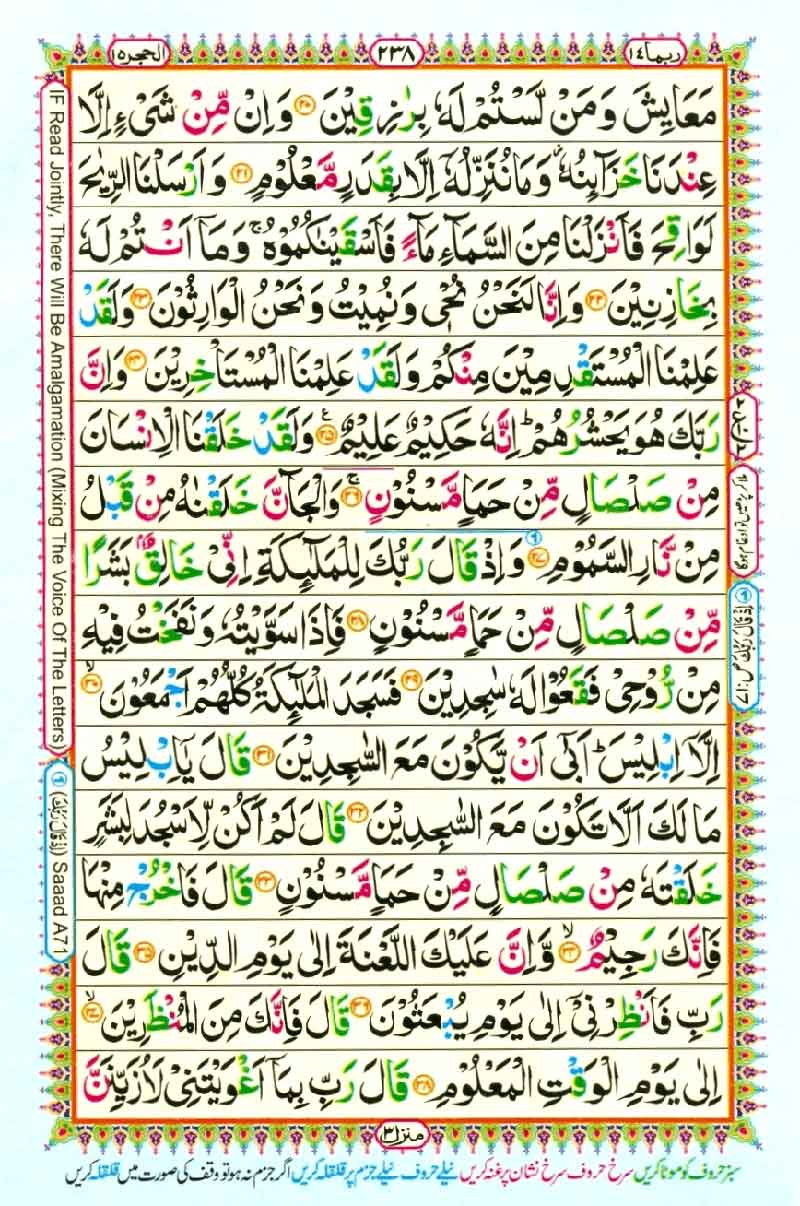 ربما ١٤
٢٣٨
الحجر ١٥
مَعَايِشَ وَمَنْ لَّسْتُمْ لَهٗ بِرٰزِقِيْنَ ۝٢٠ وَاِنْ مِّنْ شَيْءٍ اِلَّا
عِنْدَنَا خَزَآئِنُهٗ ؗ وَمَا نُنَزِّلُهٗۤ اِلَّا بِقَدَرٍ مَّعْلُوْمٍ ۝٢١ وَاَرْسَلْنَا الرِّيٰحَ
لَوَاقِحَ فَاَنْزَلْنَا مِنَ السَّمَآءِ مَآءً فَاَسْقَيْنٰكُمُوْهُ ۚ وَمَاۤ اَنْتُمْ لَهٗ
بِخَازِنِيْنَ ۝٢٢ وَاِنَّا لَنَحْنُ نُحْيٖ وَنُمِيْتُ وَنَحْنُ الْوَارِثُوْنَ ۝٢٣ وَلَقَدْ
عَلِمْنَا الْمُسْتَقْدِمِيْنَ مِنْكُمْ وَلَقَدْ عَلِمْنَا الْمُسْتَاْخِرِيْنَ ۝٢٤ وَاِنَّ
رَبَّكَ هُوَ يَحْشُرُهُمْ ؕ اِنَّهٗ حَكِيْمٌ عَلِيْمٌ ۝٢٥ وَلَقَدْ خَلَقْنَا الْاِنْسَانَ
مِنْ صَلْصَالٍ مِّنْ حَمَاٍ مَّسْنُوْنٍ ۝٢٦ۚ وَالْجَآنَّ خَلَقْنٰهُ مِنْ قَبْلُ
مِنْ نَّارِ السَّمُوْمِ ۝٢٧ وَاِذْ قَالَ رَبُّكَ لِلْمَلٰٓئِكَةِ اِنِّيْ خَالِقٌۢ بَشَرًا
مِّنْ صَلْصَالٍ مِّنْ حَمَاٍ مَّسْنُوْنٍ ۝٢٨ فَاِذَا سَوَّيْتُهٗ وَنَفَخْتُ فِيْهِ
مِنْ رُّوْحِيْ فَقَعُوْا لَهٗ سٰجِدِيْنَ ۝٢٩ فَسَجَدَ الْمَلٰٓئِكَةُ كُلُّهُمْ اَجْمَعُوْنَ ۝٣٠ۙ
اِلَّاۤ اِبْلِيْسَ ؕ اَبٰۤى اَنْ يَّكُوْنَ مَعَ السّٰجِدِيْنَ ۝٣١ قَالَ يٰۤاِبْلِيْسُ
مَا لَكَ اَلَّا تَكُوْنَ مَعَ السّٰجِدِيْنَ ۝٣٢ قَالَ لَمْ اَكُنْ لِّاَسْجُدَ لِبَشَرٍ
خَلَقْتَهٗ مِنْ صَلْصَالٍ مِّنْ حَمَاٍ مَّسْنُوْنٍ ۝٣٣ قَالَ فَاخْرُجْ مِنْهَا
فَاِنَّكَ رَجِيْمٌ ۝٣٤ۙ وَّاِنَّ عَلَيْكَ اللَّعْنَةَ اِلٰى يَوْمِ الدِّيْنِ ۝٣٥ قَالَ
رَبِّ فَاَنْظِرْنِيْۤ اِلٰى يَوْمِ يُبْعَثُوْنَ ۝٣٦ قَالَ فَاِنَّكَ مِنَ الْمُنْظَرِيْنَ ۝٣٧ۙ
اِلٰى يَوْمِ الْوَقْتِ الْمَعْلُوْمِ ۝٣٨ قَالَ رَبِّ بِمَاۤ اَغْوَيْتَنِيْ لَاُزَيِّنَنَّ
منزل ٣
سبز حروف کو موٹا کریں سرخ حروف سرخ نشان پر غنہ کریں نیلے حروف نیلے جزم پر قلقلہ کریں اگر جزم نہ ہو تو وقف کی صورت میں قلقلہ کریں
IF Read Jointly, There Will Be Amalgamation (Mixing The Voice Of The Letters)
(اِذْ قَالَ رَبُّكَ) Saaad A71
اِذْ قَالَ رَبُّكَ صٓ: ٧١